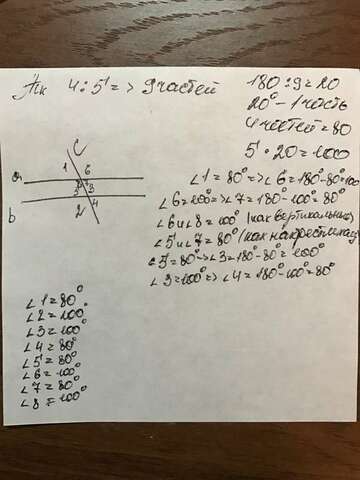 Тк 4:5 => 9 частей
180:9=20
20° - 1 часть
4 частей = 80
5·20=100
c
1 6
a
b
2 4
∠1=80° => ∠6=180°-80°=100
∠6=100° => ∠7=180°-100°=80°
∠6 и ∠8=100° (как вертикальные)
∠5 и ∠7=80° (как накрестлежащ
∠5=80° -> ∠3=180°-80°=100°
∠3=100° => ∠4=180°-100°=80°
∠1=80°
∠2=100°
∠3=100°
∠4=80°
∠5=80°
∠6=100°
∠7=80°
∠8=100°